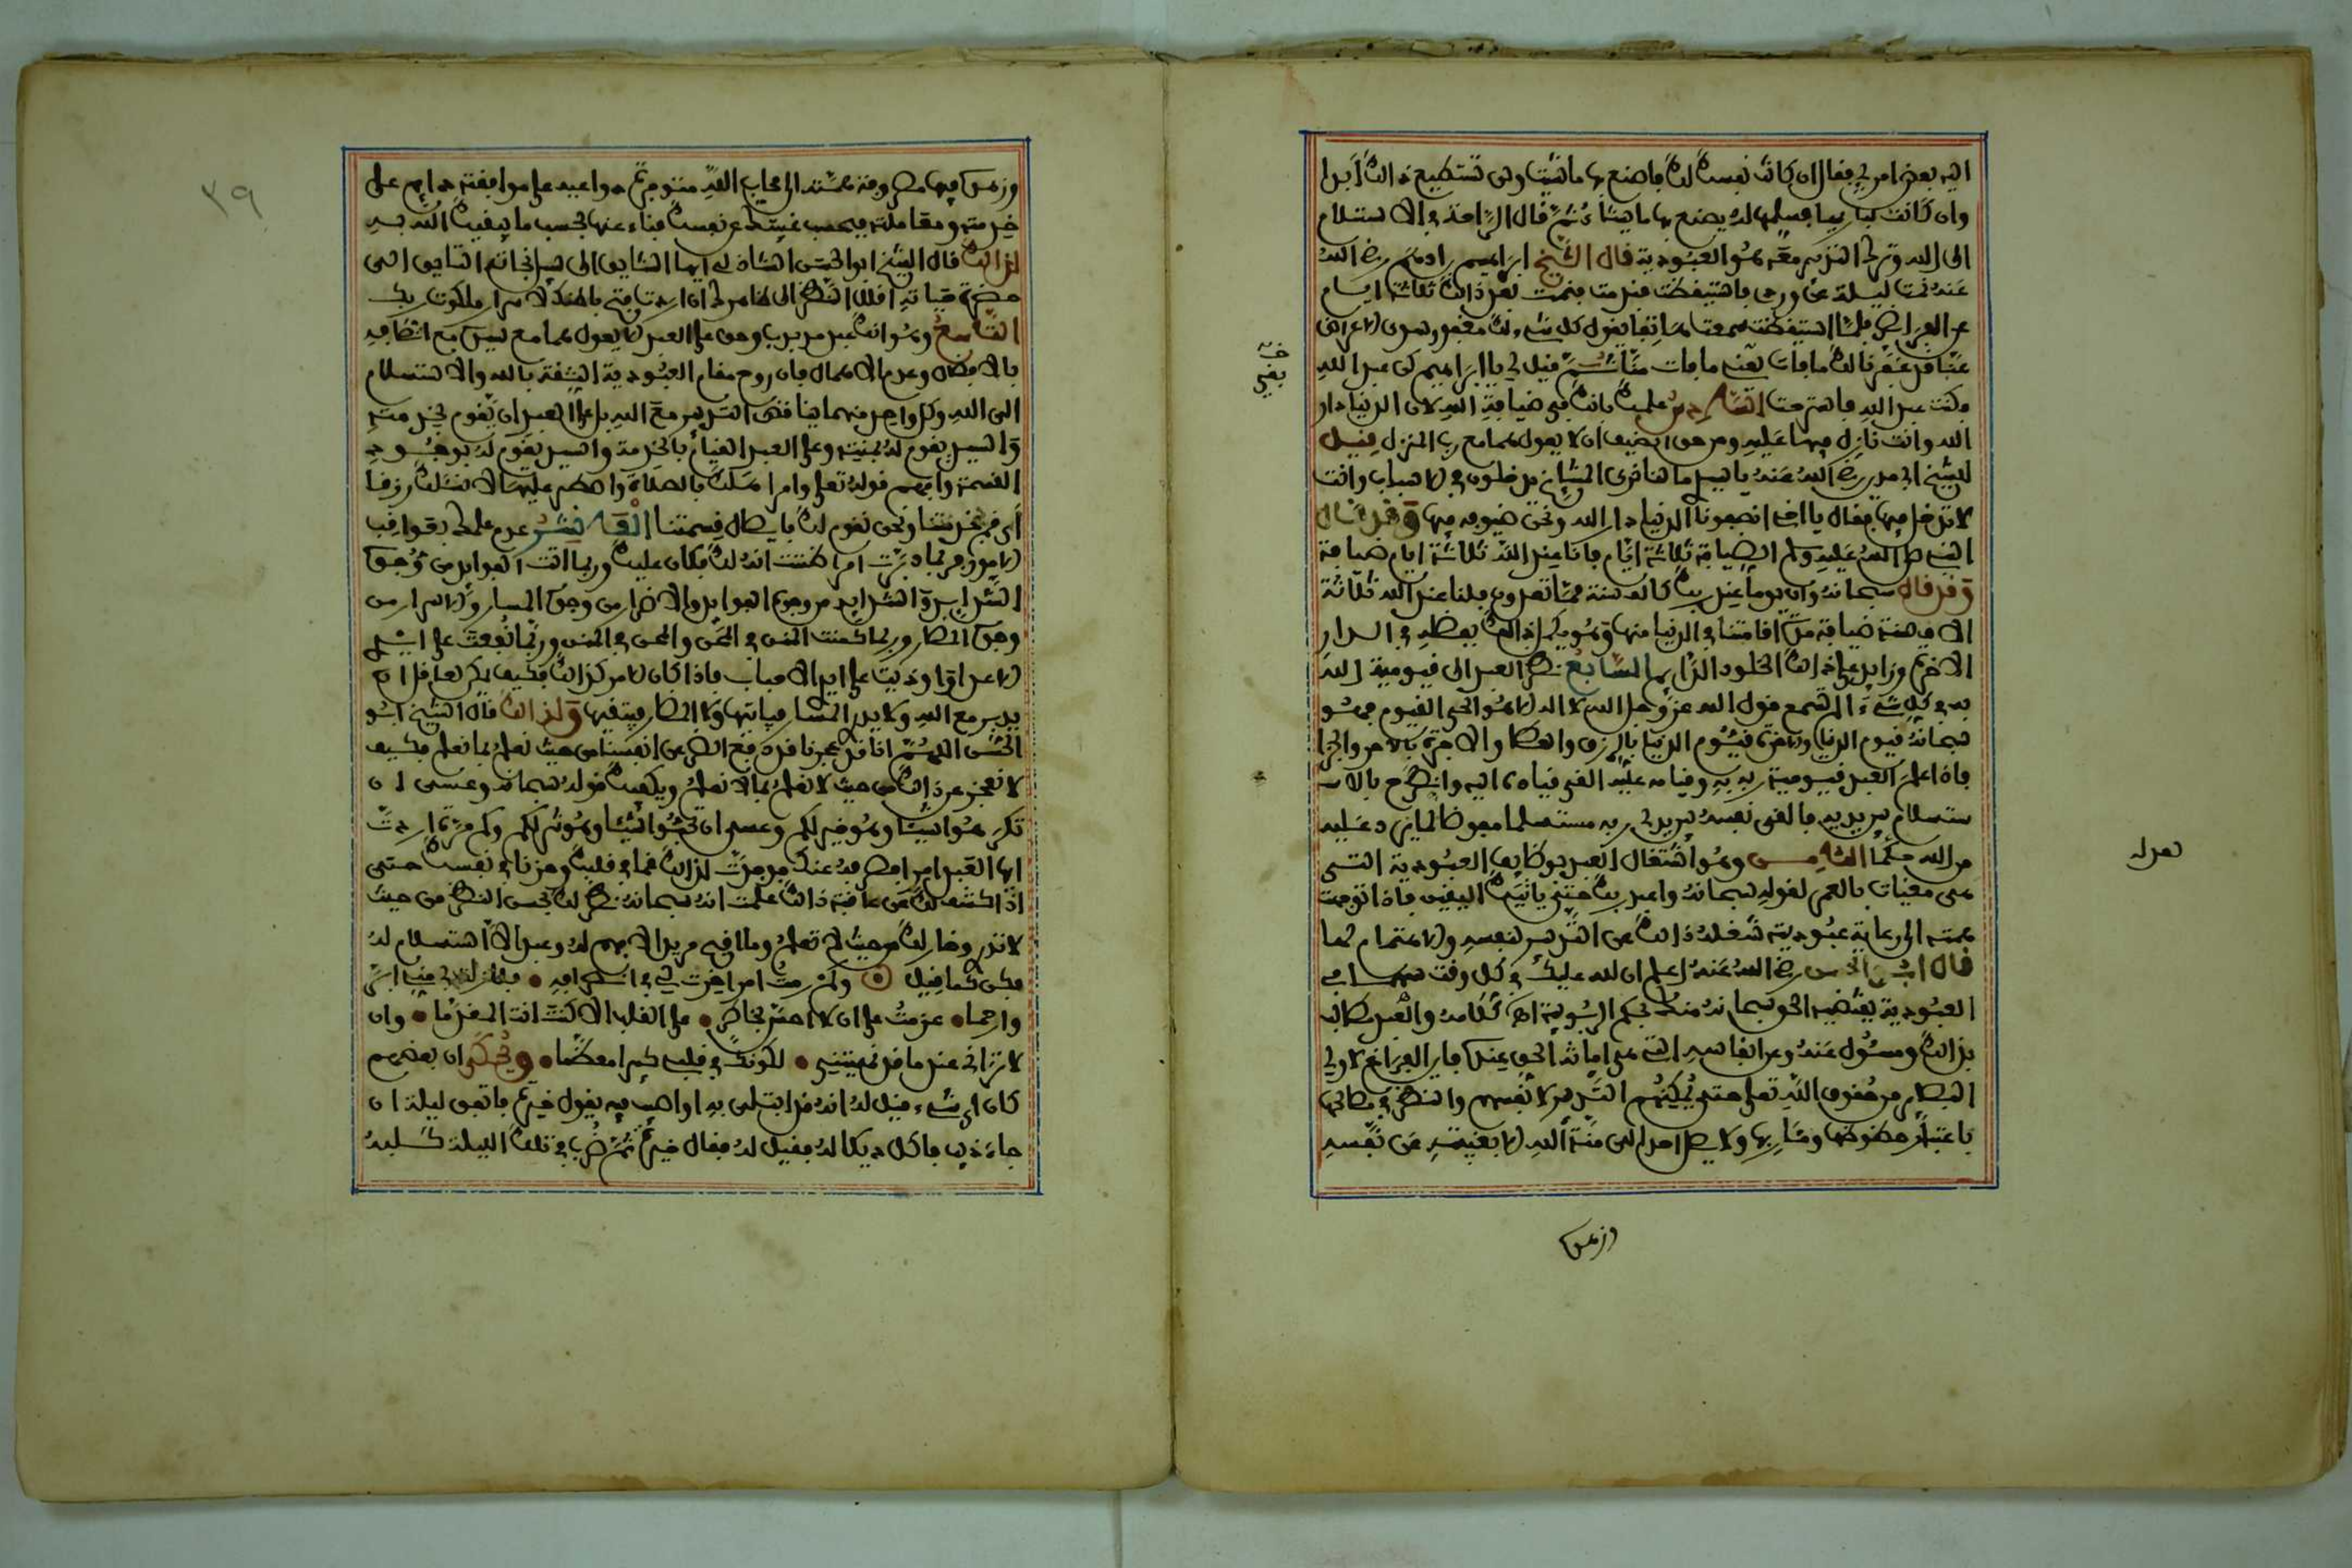 اليه بعض امري فقال ان كانت نفسك لك فاصنع بها ما شئت ولن تستطيع ذلك ابدا
وان كانت لباريها فسلمها له يصنع بها ما يشا ثم قال الراحة في الاستسلام
الى الله وترك التدبير معه وهو العبودية قال الشيخ ابراهيم بن ادهم رضي الله
عنه نمت ليلة عن وردي فاستيقظت فندمت فنمت بعد ذالك ثلاثة ايام
عن الفرايض فلما استيقظت سمعت هاتفا يقول كل شيء لك مغفور سوى الاعراض
عنا قد غفرنا لك ما فات بقي ما فات منا ثم قيل لي يا ابراهيم كن عبد الله
فكنت عبد الله فاسترحت السادس علمك بانك في ضيافة الله لان الدنيا دار
الله وانت نازل فيها عليه ومن حق الضيف ان لا يعول هما مع رب المنزل قيل
للشيخ ابي مدين رضي الله عنه يا سيدي ما لنا نرى المشايخ يدخلون في الاسباب وانت
لا تدخل فيها فقال يا اخي انصفونا الدنيا دار الله ونحن ضيوفه فيها وقد قال
النبي صلى الله عليه وسلم الضيافة ثلاثة ايام فلنا عند الله ثلاثة ايام ضيافة
وقد قال سبحانه وان يوما عند ربك كالف سنة مما تعدون فلنا عند الله ثلاثة
الاف سنة ضيافة مدة اقامتنا في الدنيا منها وهو يكمل ذالك بفضله في الدار
الاخرة وزايد على ذالك الخلود الدايم السابع نظر العبد الى قيومية الله
به في كل شيء الم تسمع قول الله عز وجل الله لا اله الا هو الحي القيوم فهو
سبحانه قيوم الدنيا والاخرة قيوم الدنيا بالرزق والعطا والاخرة بالاجر والجزا
فاذا علم العبد قيومية ربه به وقيامه عليه القى قياده اليه وانطرح بالا
ستسلام بين يديه فالقى نفسه بين يدي ربه مستسلما مفوضا لما يرد عليه
من الله حكما الثامن وهو اشتغال العبد بوظايف العبودية التي
هي مغيات بالعمر لقوله سبحانه واعبد ربك حتى ياتيك اليقين فاذا توجهت
همته الى رعاية عبوديته شغله ذالك عن التدبير لنفسه والاهتمام لها
قال ابو الحسن رضي الله عنه اعلم ان لله عليك في كل وقت سهما في
العبودية يقتضيه الحق سبحانه منك بحكم الربوبية اه كلامه والعبد مطالب
بذالك ومسئول عنه وعن انفاسه التي هي امانة الحق عنده فاين الفراغ لاولي
البصاير من حقوق الله تعلى حتى يمكنهم التدبير لانفسهم والنظر في مصالحها
باعتبار حظوظها ومئاربها ولا يصل احد الى منة الله الا بغيبته عن نفسه
وزهده
وزهده فيها مصروفة همته الى محاب الله متوفرة دواعيه على موافقته دايم على
خدمته ومعاملته فبحسب غيبتك عن نفسك فناء عنها بحسب ما يبقيك الله به
لذالك قال الشيخ ابو الحسن الشاذلي ايها السابق الى سبيل نجاته الشايق الى
حضرة حياته اقلل النظر الى ظاهرك ان اردت فتح باطنك لاسرار ملكوت ربك
التاسع وهو انك عبد مربوب وحق على العبد لا يعول هما مع سيده مع اتصافه
بالافضال وعدم الاهمال فان روح مقام العبودية الثقة بالله والاستسلام
الى الله وكل واحد منهما يناقض التدبير مع الله بل على العبد ان يقوم بخدمته
والسيد يقوم له بمنته وعلى العبد القيام بالخدمة والسيد يقوم له بوجود
القسمة وافهم قوله تعلى وامر اهلك بالصلاة واصطبر عليها لا نسئلك رزقا
اي قم بخدمتنا ونحن نقوم لك بايصال قسمتنا العاشر عدم علمك بعواقب
الامور فربما دبرت امرا ظننت انه لك فكان عليك وربما اتت الفوايد من وجوه
الشدايد والشدايد من وجوه الفوايد والاضرار من وجوه المسار والاسرار من
وجوه المضار وربما كمنت المنن في المحن والمحن في المنن وربما انتفعت على ايدي
الاعداء واوذيت على ايدي الاحباب فاذا كان الامر كذالك فكيف يمكن لعاقل ان
يدبر مع الله ولا يدر المسار فياتيها ولا المضار فيتقيها ولذالك قال الشيخ ابو
الحسن اللهم انا قد عجزنا عن دفع الضر عن انفسنا من حيث نعلم بما نعلم فكيف
لا نعجز عن ذالك من حيث لا نعلم بما لا نعلم ويكفيك قوله سبحانه وعسى ان
تكرهوا شيئا وهو خير لكم وعسى ان تحبوا شيئا وهو شر لكم وكم مرة اردت
ايها العبد امرا فصرفه عنك فوجدت لذالك غما في قلبك وحزنا في نفسك حتى
اذا كشف لك عن عاقبة ذالك علمت انه سبحانه نظر لك بحسن النظر من حيث
لا تدر وخار لك من حيث لا تعلم وما اقبح مريدا لا فهم له وعبدا لا استسلام له
فكن كما قيل وكم رمت امرا خرت لي في انصرافه فلا زلت بي مني ابر
وارحما عزمت على ان لا احس بخاطر على القلب الا كنت انت المقدما وان
لا تراني عند ما قد نهيتني لكونك في قلبي كبيرا معظما ويحكى ان بعضهم
كان اي شيء قيل له انه قد ابتلي به او اصيب به يقول خيرة فاتفق ليلة ان
جاء ذيب فاكل ديكا له فقيل له فقال خيرة ثم ضرب في تلك الليلة كلبه
٣٩